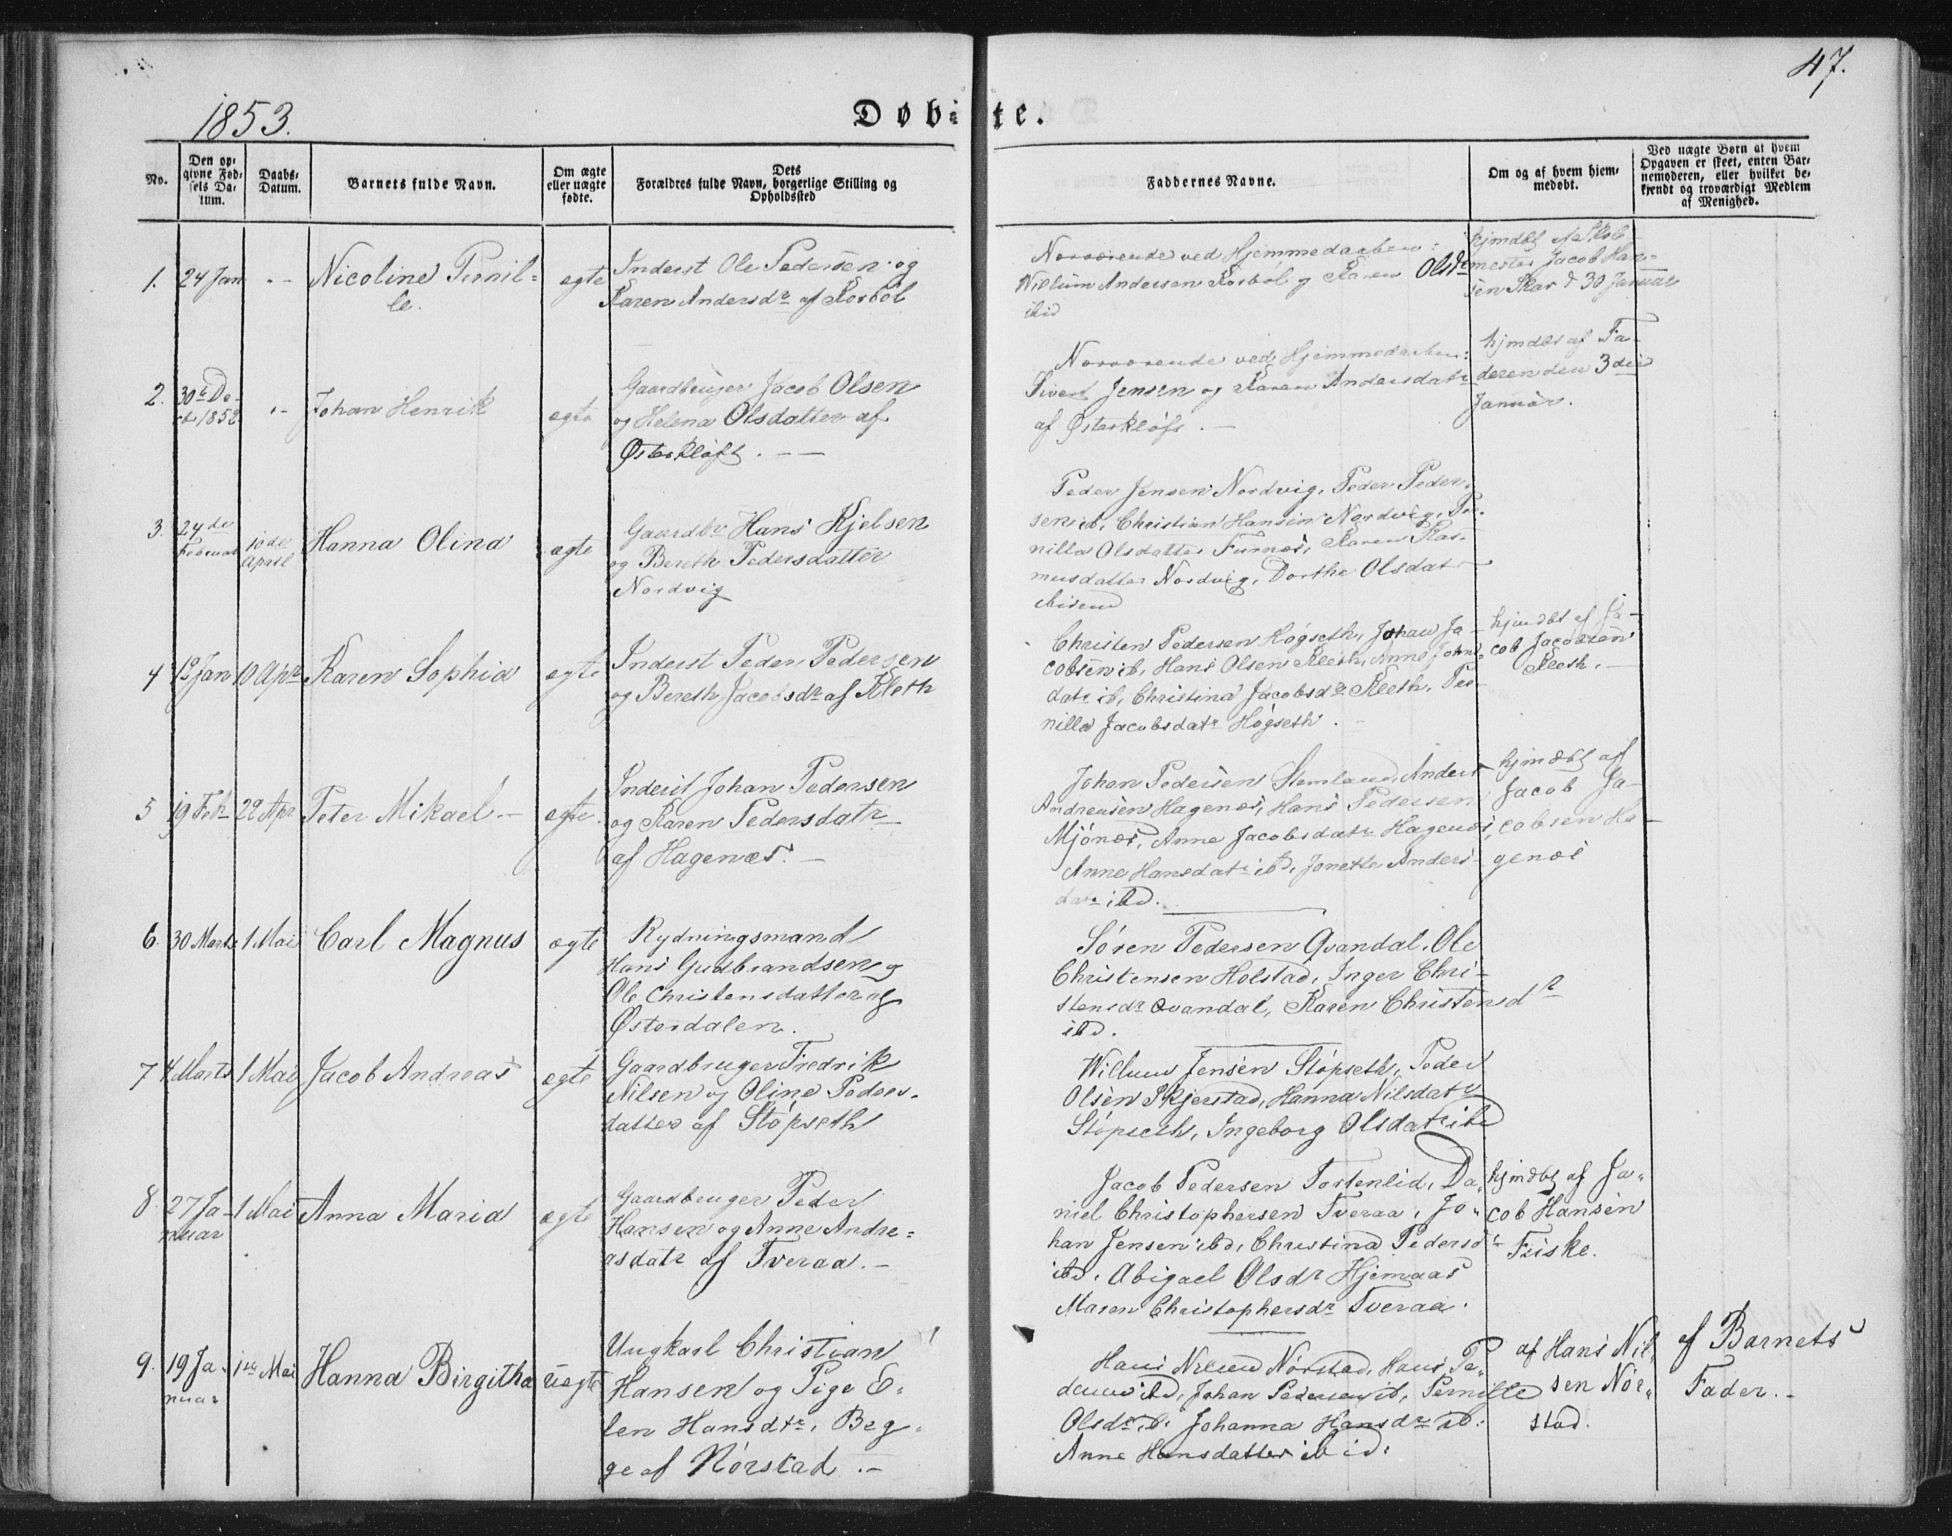 47.
1853.
Døbte.
No.
Den opgivne Fødsels Datum.
Daabs-Datum.
Barnets fulde Navn.
Om ægte eller uægte fødte.
Dets Forældres fulde Navn, borgerlige Stilling og Opholdssted
Faddernes Navne.
Om og af hvem hjemmedøbt.
Ved uægte Børn at hvem Opgaven er skeet, enten Barnemoderen, eller hvilket bekjendt og troværdigt Medlem af Menighed.
1. 24 Jan
Nicoline Pernil=
le.
egte
Inderst Ole Pedersen og
Karen Andersdr af Kosbøl
Nærværende ved Hjemmedaaben:
Willum Andersen Kosbøl og Karen Olsdr
ibid
hjmdbt af Skol-
mester Jacob Han-
sen Skar d 30 Januar
2. 30te De-
cb 1852
Johan Henrik
egte
Gaardbruger Jacob Olsen
og Helena Olsdatter af
Østerkløft. —
Nærværende ved Hjemmedaaben:
Sivert Jensen og Karen Andersdatr
af Østerkløft. —
hjmdbt af Fa-
deren den 3die
Januar.
3. 24de
Februar
10de
April
Hanna Olina
ægte
Gaardbr Hans Kjelsen
og Bereth Pedersdatter
Nordvig
Peder Jensen Nordvig, Peder Peder-
sen ib, Christian Hansen Nordvig, Per-
nilla Olsdatter Furnes, Karen Ras-
musdatter Nordvig, Dorthe Olsdatr
ibidem
4 12 Jan 10 Apr
Karen Sophia
egte
Inderst Peder Pedersen
og Bereth Jacobsdr af Kleth
Christen Pedersen Høgseth, Johan Ja-
cobsen ib, Hans Olsen Kleth, Anne Johns
datr ib, Christina Jacobsdr Kleeth, Per-
nilla Jacobsdatr Høgseth.
hjmdbt af Ja-
cob Jacobsen
Kleth. —
5 19 Feb 22 Apr
Peter Mikael —
egte
Inderst Johan Pedersen
og Karen Pedersdatr
af Hagenæs. —
Johan Pedersen Stemland, Anders
Andreasen Hagenæs, Hans Pedersen
Mjónæs, Anne Jacobsdatr Hagenæs,
Anne Hansdatr ibd, Jonette Anders-
datr ibd.
hjmdbt af
Jacob Ja-
cobsen Ha-
genæs
6. 30 Marts 1 Mai
Carl Magnus
ægte
Rydningsmand
Hans Gudbrandsen og
Christensdatter af
Østerdalen.
Søren Pedersen Qvandal, Ole
Christensen Holstad, Inger Chri-
stensdr Qvandal, Karen Christensdr
ibd.
7 4 Marts 1 Mai
Jacob Andreas
egte
Gaardbruger Fredrik
Nilsen og Oline Peders-
datter af Støpseth
Willum Jensen Støpseth, Peder
Olsen Skjerstad, Hanna Nilsdatr
Støpseth, Ingeborg Olsdatr ibd
8. 27 Ja-
nuar
1 Mai
Anna Maria
egte
Gaardbruger Peder
Hansen og Anne Andre=
asdatr af Tveraa. —
Jacob Pedersen Tortenlid, Da-
niel Christophersen Tveraa, Jo-
han Jensen ibd, Christina Pedersdr
ibd. Abigael Olsdr Hjemaas
Maren Christophersdr Tveraa.
hjmdbt af Ja-
cob Hansen
Friske.
9. 19 Ja-
nuar
1ste Mai
Hanna Birgitha
uægte
Ungkarl Christian
Hansen og Pige E-
len Hansdtr. Beg-
ge af Nórstad. —
Hans Nilsen Nórstad, Hans Pe-
dersen ibd, Johan Pedersen ib, Pernille
Olsdr ib. Johanna Hansdr ib.
Anne Hansdatter ibid.
af Hans Nil-
sen Nór-
stad.
af Barnets
Fader. —